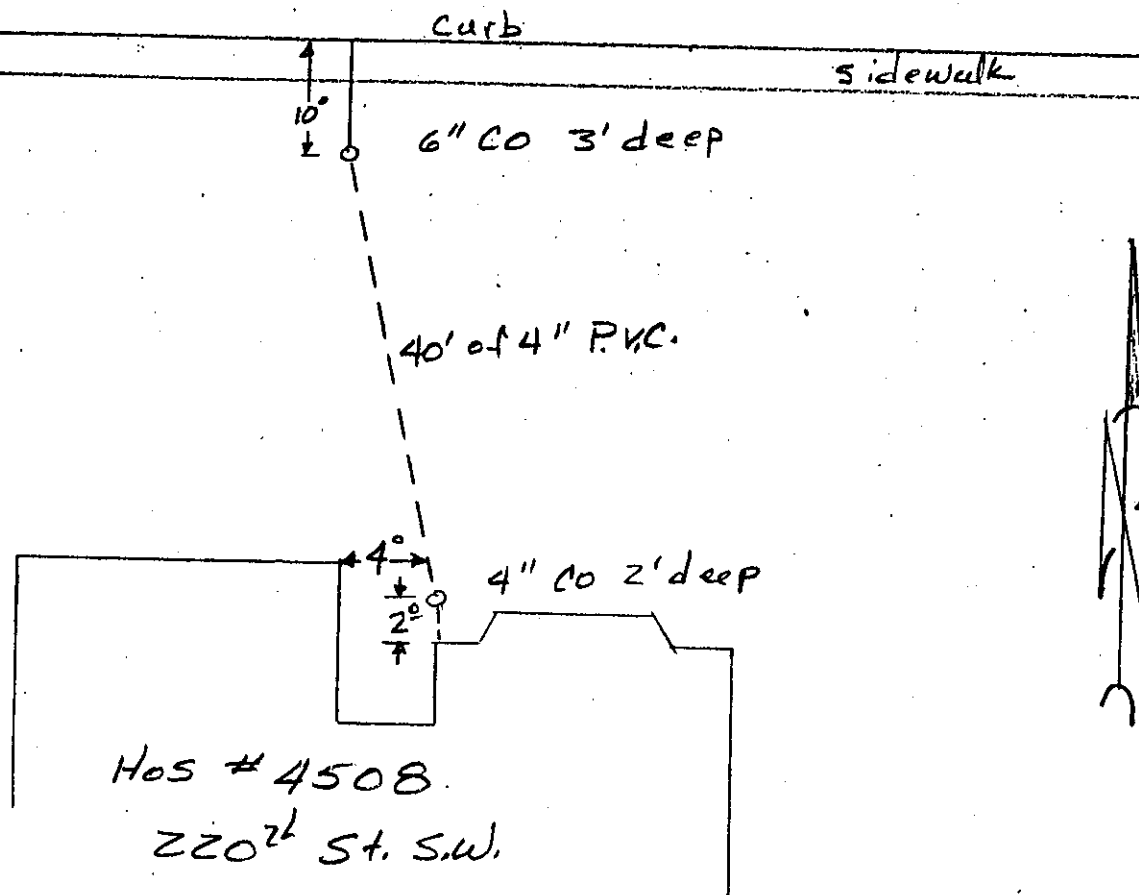 Curb
sidewalk
10°
6" CO 3' deep
40' of 4" P.V.C.
4°
4" Co 2' deep
2°
Hos # 4508
N